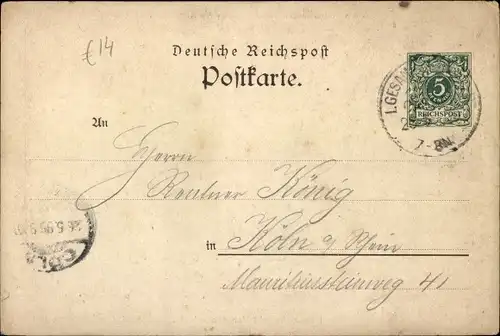 £14
Deutsche Reichspost
Postkarte.
5
REICHSPOST
I. GESA
7-8N
An
Herrn
Rentner König
in Köln a/Rhein
Mauritiussteinweg 41
26.5.95
CÖL